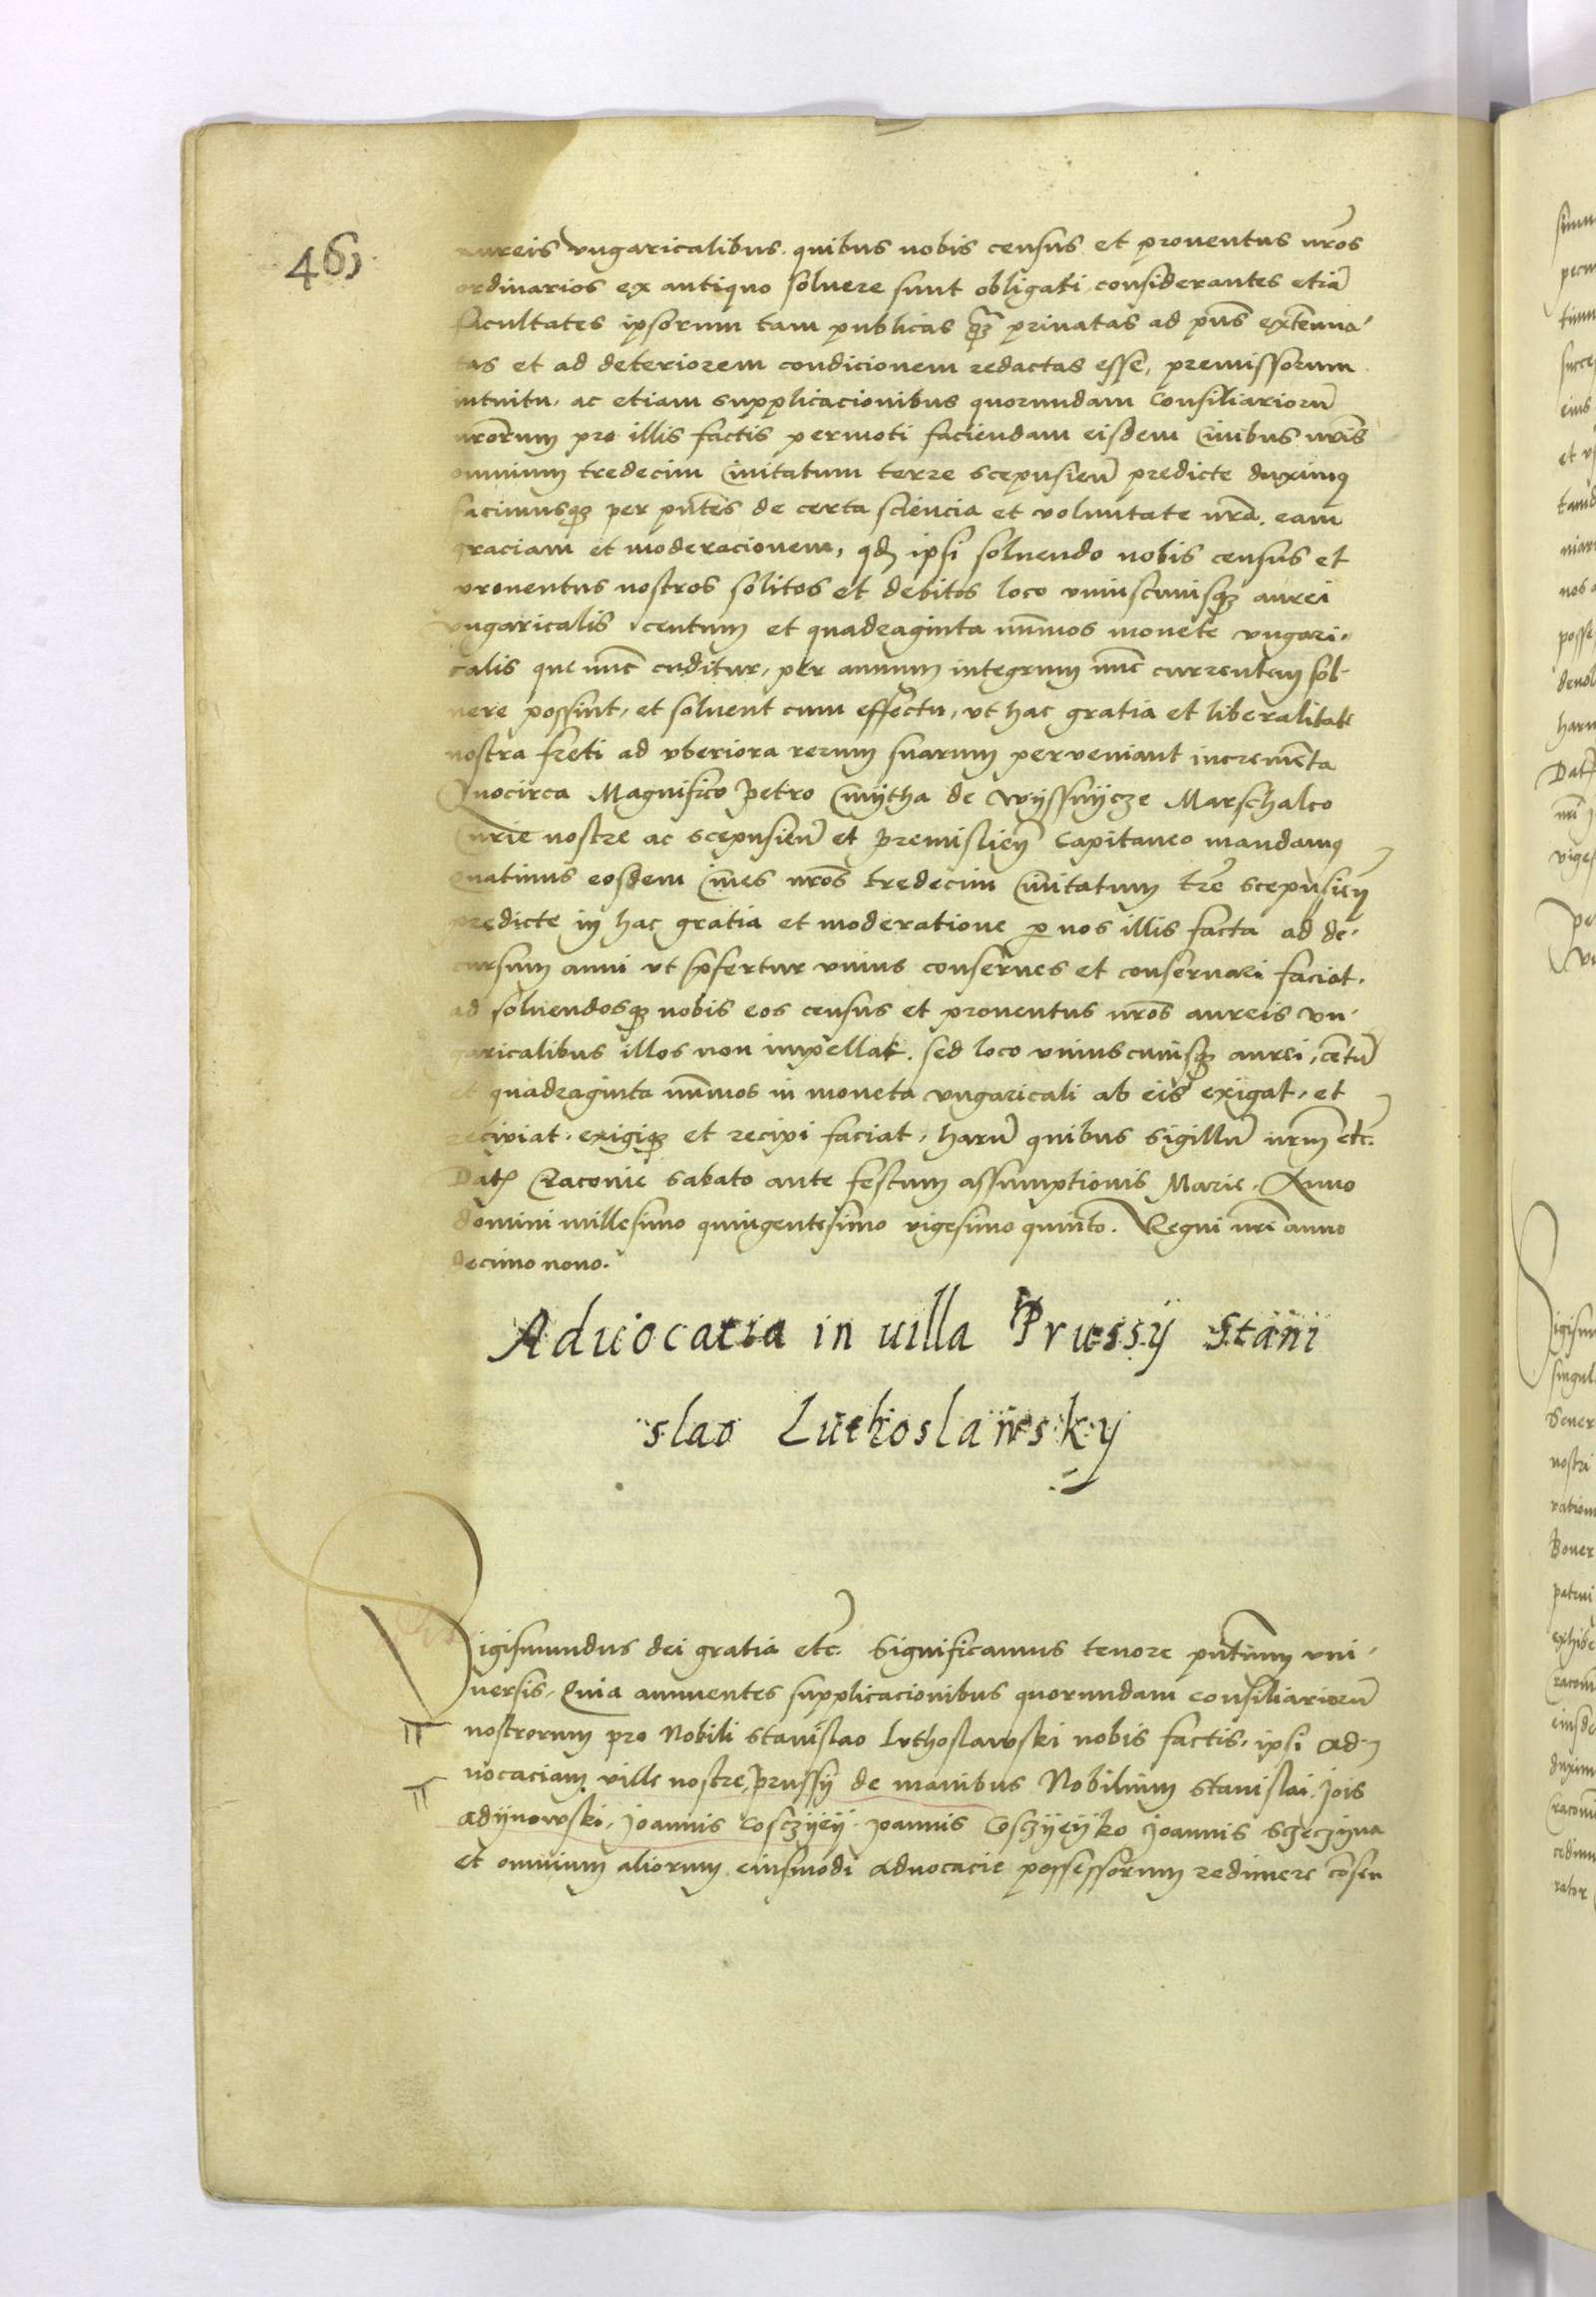 461
aureis vngaricalibus. quibus nobis census et prouentus nr̃os
ordinarios ex antiquo soluere sunt obligati considerantes etiã
facultates ipsorum tam publicas q̃ꝫ priuatas ad pn̄s extenua-
tas et ad deteriorem condicionem redactas esse, premissorum
intuitu, ac etiam supplicacionibus quorundam Consiliariorũ
nr̃orum pro illis factis permoti faciendam eisdem Ciuibus nr̃is
omnium tredecim Ciuitatum terre scepusieñ predicte duximꝰ
facimusqꝫ per pn̄tes de certa sciencia et voluntate nr̃a. eam
graciam et moderacionem, qd ipsi soluendo nobis census et
prouentus nostros solitos et debitos loco vniuscuiusqꝫ aurei
vngaricalis centum et quadraginta nũmos monete vngari-
calis que nũc cuditur, per annum integrum nũc currentem sol-
uere possint, et soluent cum effectu, vt hac gratia et liberalitate
nostra freti ad vberiora rerum suarum perveniant incremẽta
Quocirca Magnifico Petro Cmijtha de Wijssnijcze Marschalco
Curie nostre ac scepusieñ et Premislieñ Capitaneo mandamꝰ
Quatinus eosdem Ciues nr̃os tredecim Ciuitatum tr̃e scepusieñ
predicte in hac gratia et moderatione ꝑ nos illis facta ad de-
cursum anni vt p̃fertur vnius conserues et conseruari faciat.
ad soluendosqꝫ nobis eos census et prouentus nr̃os aureis vn-
garicalibus illos non impellat. sed loco vniuscuiusqꝫ aurei, cẽtũ
et quadraginta nũmos in moneta vngaricali ab eis exigat, et
recipiat. exigiqꝫ et recipi faciat, harũ quibus sigillũ nr̃m etc.
Dat Cracouie sabato ante festum assumptionis Marie. Anno
domini millesimo quingentesimo vigesimo quinto. Regni nr̃i anno
decimo nono.
Aduocatia in uilla Prussÿ Stani
slao Luthoslawsky
Sigismundus dei gratia etc. Significamus tenore pn̄tium vni-
uersis, Quia annuentes supplicacionibus quorundam consiliariorũ
nostrorum pro Nobili Stanislao Luthoslawski nobis factis, ipsi ad-
uocaciam ville nostre, Prussij de manibus Nobilium Stanislai, Jois
adijnowski, Joannis Cosczijeij. Joannis Cosczijeijko Joannis Sczeczijna
et omnium aliorum eiusmodi aduocacie possessorum redimere cõsen